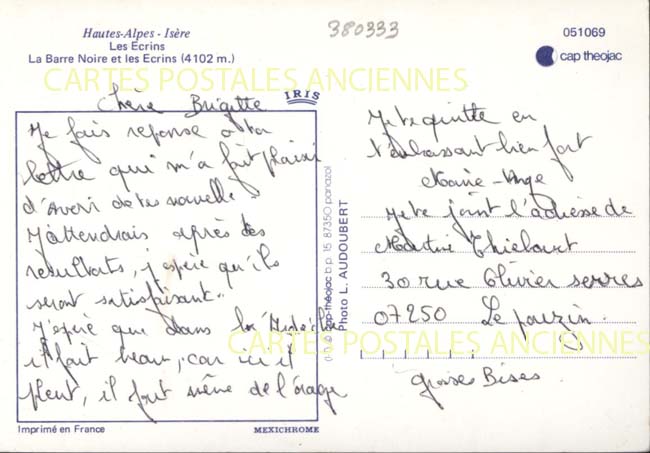 Hautes-Alpes - Isère
Les Ecrins
La Barre Noire et les Ecrins (4102 m.)
380333
051069
cap theojac
CARTES POSTALES ANCIENNES
IRIS
Chère Brigitte
Je fais reponse a ta
lettre qui m'a fait plaisir
d'avoir de tes nouvelle
J'attendrais après tes
resultats, j'espère qu'ils
seront satisfaisant..
J'espère que dans la
il fait beau, car ici il
pleut, il fait même de l'orage
Je te quitte en
t'embrassant bien fort
Marie-Ange
Je te joint l'adresse de
Martine Thiebaut
30 rue Olivier serres
07250 Le pouzin
grosses Bises
cap-théojac b.p. 15 87350 panazol
Photo L. AUDOUBERT
CARTES POSTALES ANCIENNES
Imprimé en France
MEXICHROME